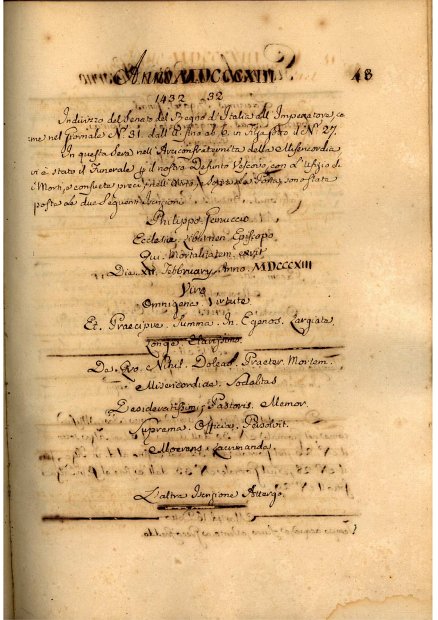 Anno MDCCCXIII 48
1432 32
Indirizzo del Senato del Regno d'Italia all' Imperatore, co
me nel Giornale N.º 31. dall' al fino ab 6. in N.º 27.
In questa Sera nell' Arciconfraternita della Misericordia
vi è stato il Funerale p il nostro Defunto Vescovo, con l' Uffizio de
Morti, e consuete preci, sono state
poste le due Seguenti Iscrizioni
Philippo Genuccio
Ecclesiæ Episcopo
Qui. Mortalitatem. exivit
Die. XII. Februarij. Anno. MDCCCXIII
Viro
Omnigena Virtute
Et. Praecipue. Summa. In. Egenos. Largitate
Longe. Clarissimo.
De. Quo. Nihil. Dolead. Praeter. Mortem.
Misericordiae. Sodalitas
Pastoris. Memor
Suprema. Officia. Persolvit.
Moerens. Lacrimande.
L'altra Iscrizione Attergo.